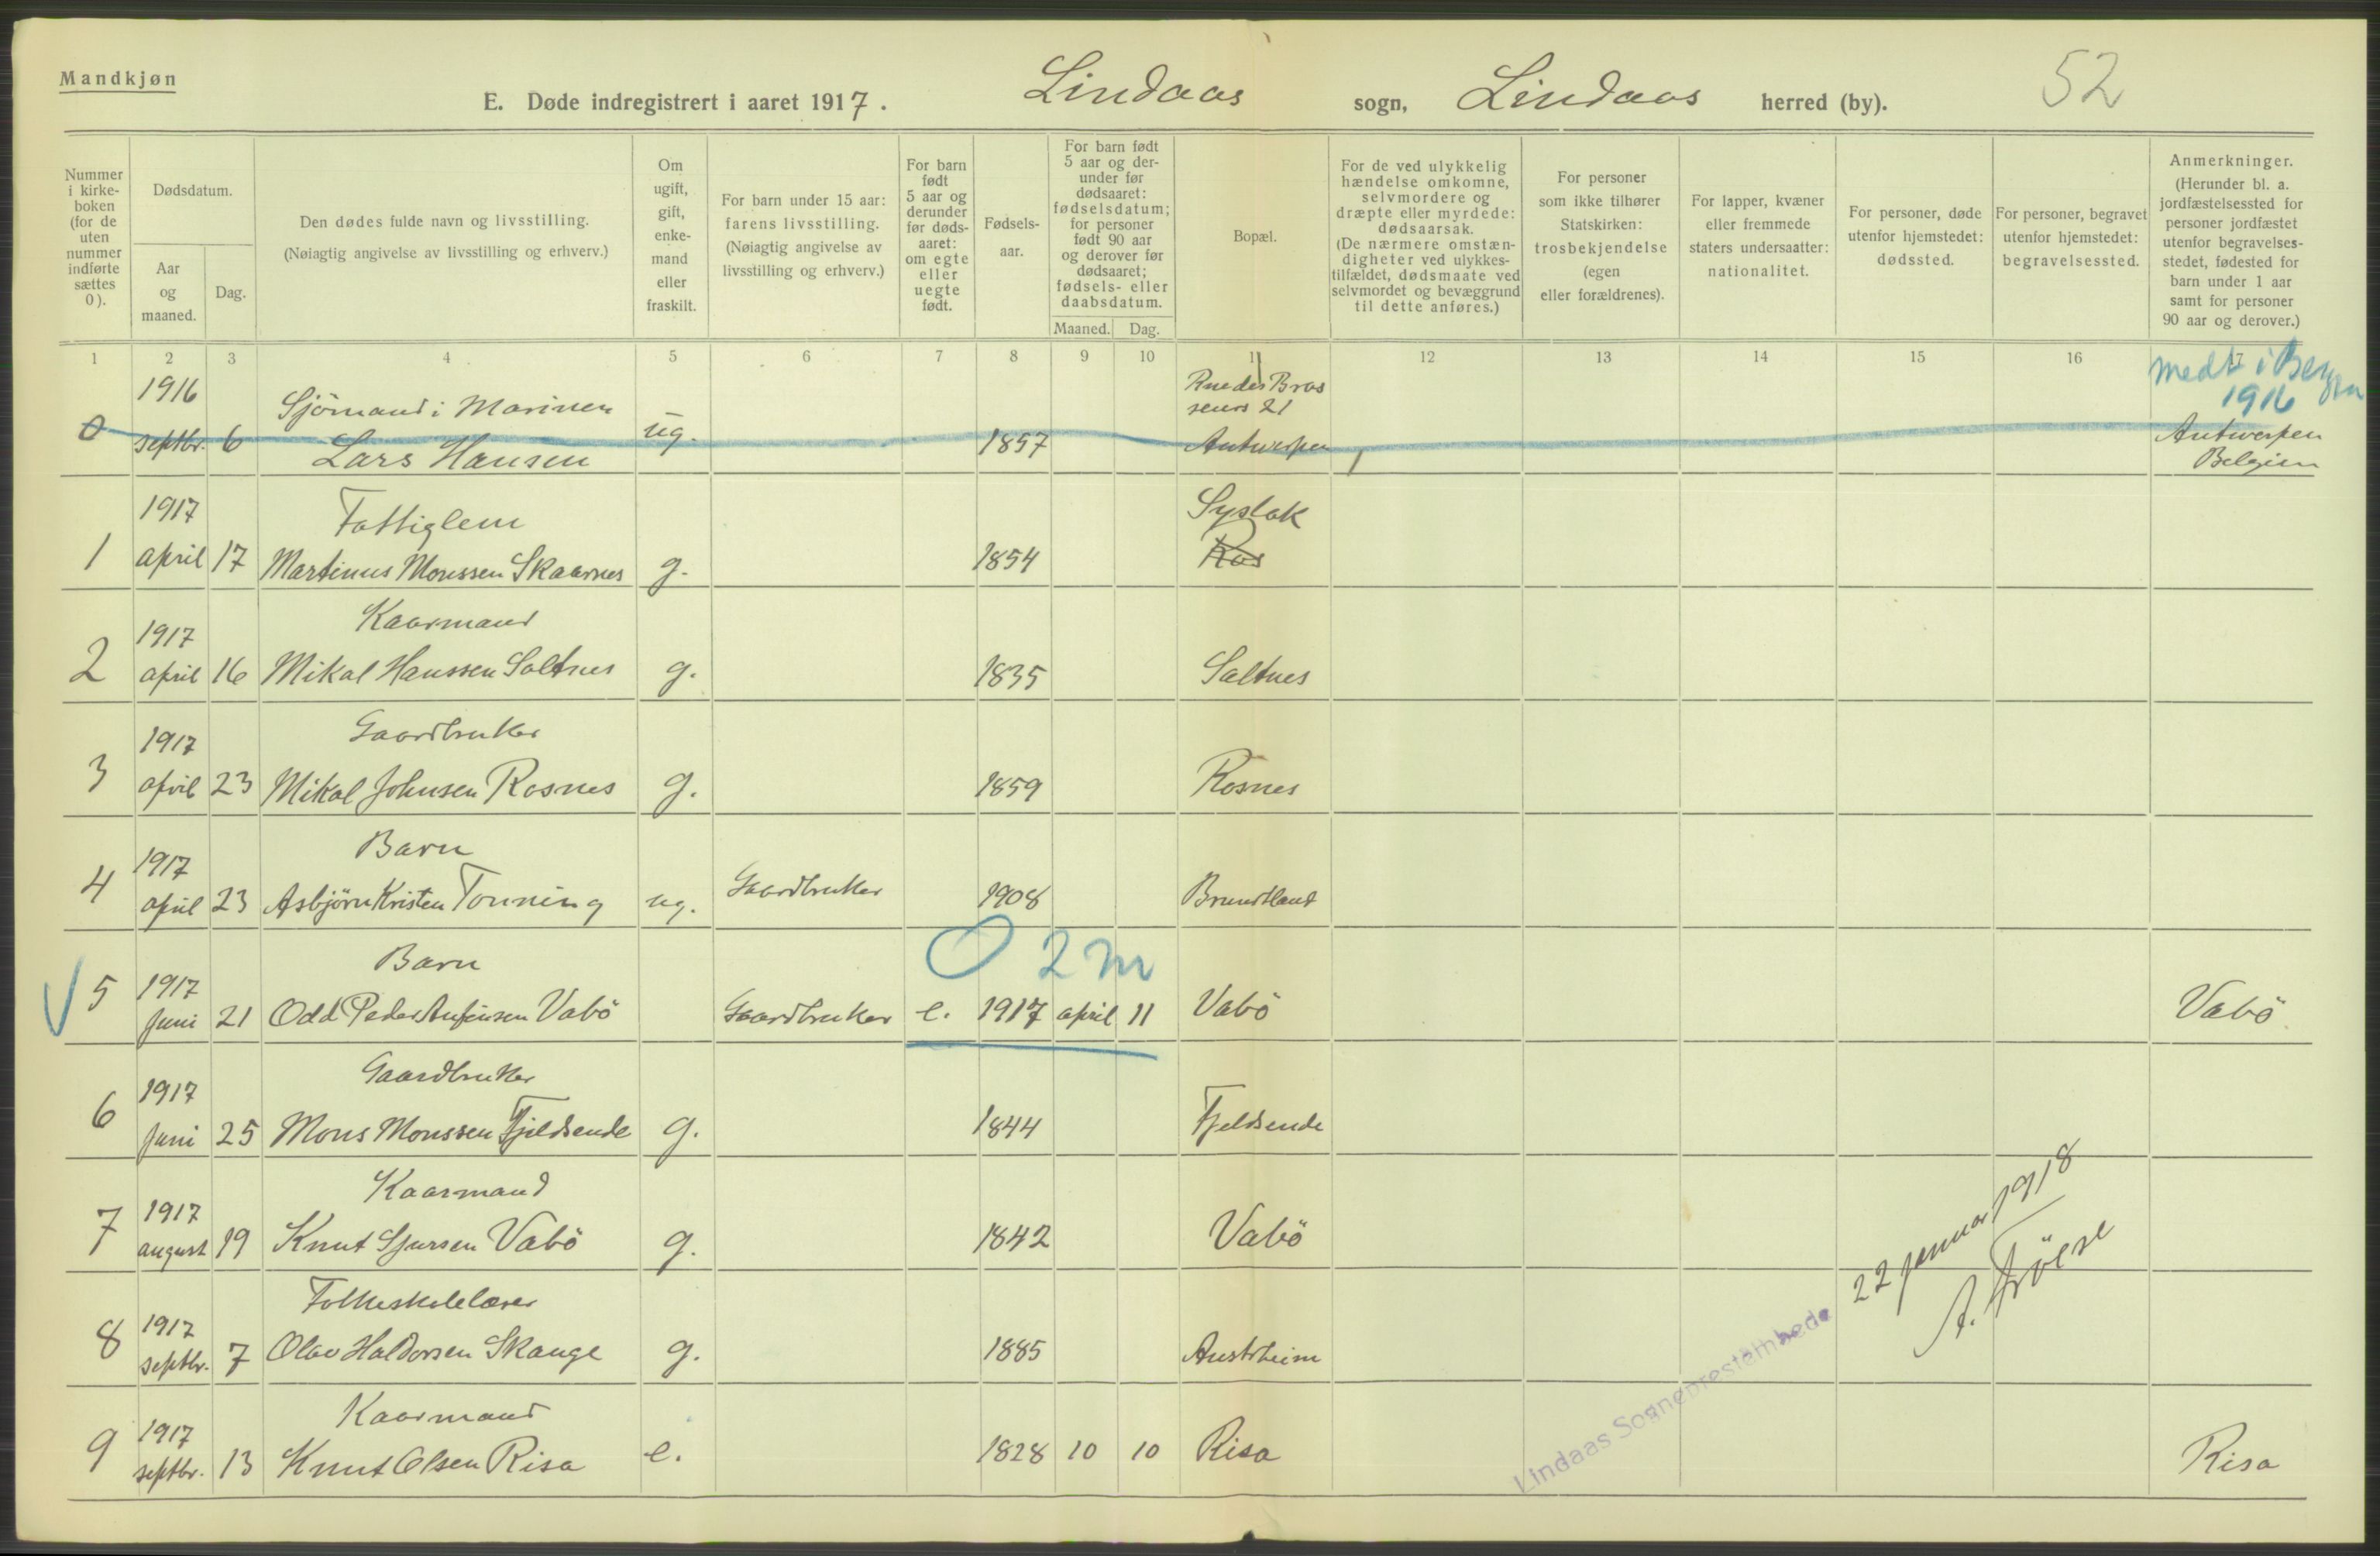 Mandkjøn
E. Døde indregistrert i aaret 1917. Lindaas sogn, Lindaas herred (by). 52
Nummer i kirke-boken (for de uten nummer indførte sættes 0).
Dødsdatum.
Aar og maaned.
Dag.
Den dødes fulde navn og livsstilling.
(Nøiagtig angivelse av livsstilling og erhverv.)
Om ugift, gift, enke-mand eller fraskilt.
For barn under 15 aar: farens livsstilling.
(Nøiagtig angivelse av livsstilling og erhverv.)
For barn født 5 aar og derunder før døds-aaret: om egte eller uegte født.
Fødsels-aar.
For barn født 5 aar og der-under før dødsaaret: fødselsdatum; for personer født 90 aar og derover før dødsaaret; fødsels- eller daabsdatum.
Maaned. Dag.
Bopæl.
For de ved ulykkelig hændelse omkomne, selvmordere og dræpte eller myrdede: dødsaarsak.
(De nærmere omstæn-digheter ved ulykkes-tilfældet, dødsmaate ved selvmordet og bevæggrund til dette anføres.)
For personer som ikke tilhører Statskirken: trosbekjendelse (egen eller forældrenes).
For lapper, kvæner eller fremmede staters undersaatter: nationalitet.
For personer, døde utenfor hjemstedet: dødssted.
For personer, begravet utenfor hjemstedet: begravelsessted.
Anmerkninger.
(Herunder bl. a. jordfæstelsessted for personer jordfæstet utenfor begravelses-stedet, fødested for barn under 1 aar samt for personer 90 aar og derover.)
1 2 3 4 5 6 7 8 9 10 11 12 13 14 15 16 17
medt i Bergen
1916
1916 Sjömand i Marinen Rue des Bras
seurs 21
0 septbr. 6 Lars Hansen ug. 1857 Antwerpen Antwerpen
Belgien
1917 Fattiglem Syslak
1 april 17 Martinus Monssen Skaarnes g. 1854 Ros
1917 Kaarmand
2 april 16 Mikal Hanssen Saltnes g. 1835 Saltnes
1917 Gaardbruker
3 april 23 Mikal Johnsen Rosnes g. 1859 Rosnes
1917 Barn
4 april 23 Asbjörn Kristen Tonning ug. Gaardbruker 1908 Brundtland
0 2 m
1917 Barn
5 juni 21 Odd Peder Anfinsen Vabö Gaardbruker e. 1917 april 11 Vabö Vabö
1917 Gaardbruker
6 juni 25 Mons Monssen Fjeldsende g. 1844 Fjeldsende
1917 Kaarmand
7 august 19 Knut Sjursen Vabö g. 1842 Vabö
1917 Folkeskolelærer
8 septbr. 7 Olav Haldorsen Skauge g. 1885 Austrheim
1917 Kaarmand
9 septbr. 13 Knut Olsen Risa e. 1828 10 10 Risa Risa
Lindaas Sogneprestembede 22 januar 1918